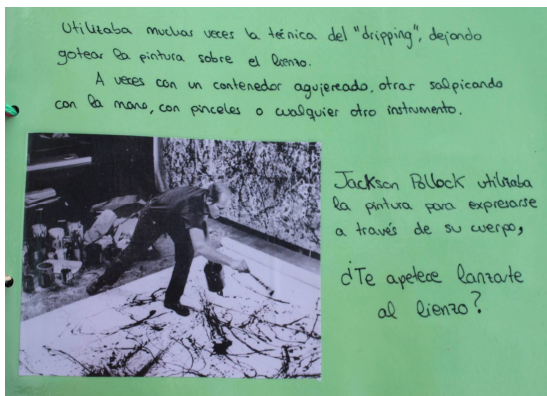 Utilizaba muchas veces la técnica del "dripping", dejando
gotear la pintura sobre el lienzo.
A veces con un contenedor agujereado, otras salpicando
con la mano, con pinceles o cualquier otro instrumento.
Jackson Pollock utilizaba
la pintura para expresarse
a través de su cuerpo,
¿Te apetece lanzarte
al lienzo?